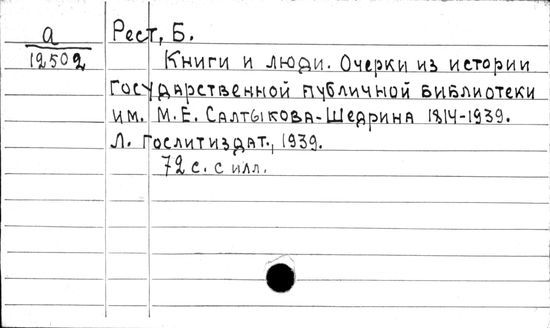 а
12502
Рест, Б.
Книги и люди. Очерки из истории
Государственной Публичной библиотеки
им. М.Е. Салтыкова-Щедрина 1814-1939.
Л. Гослитиздат., 1939.
72 с. с илл.